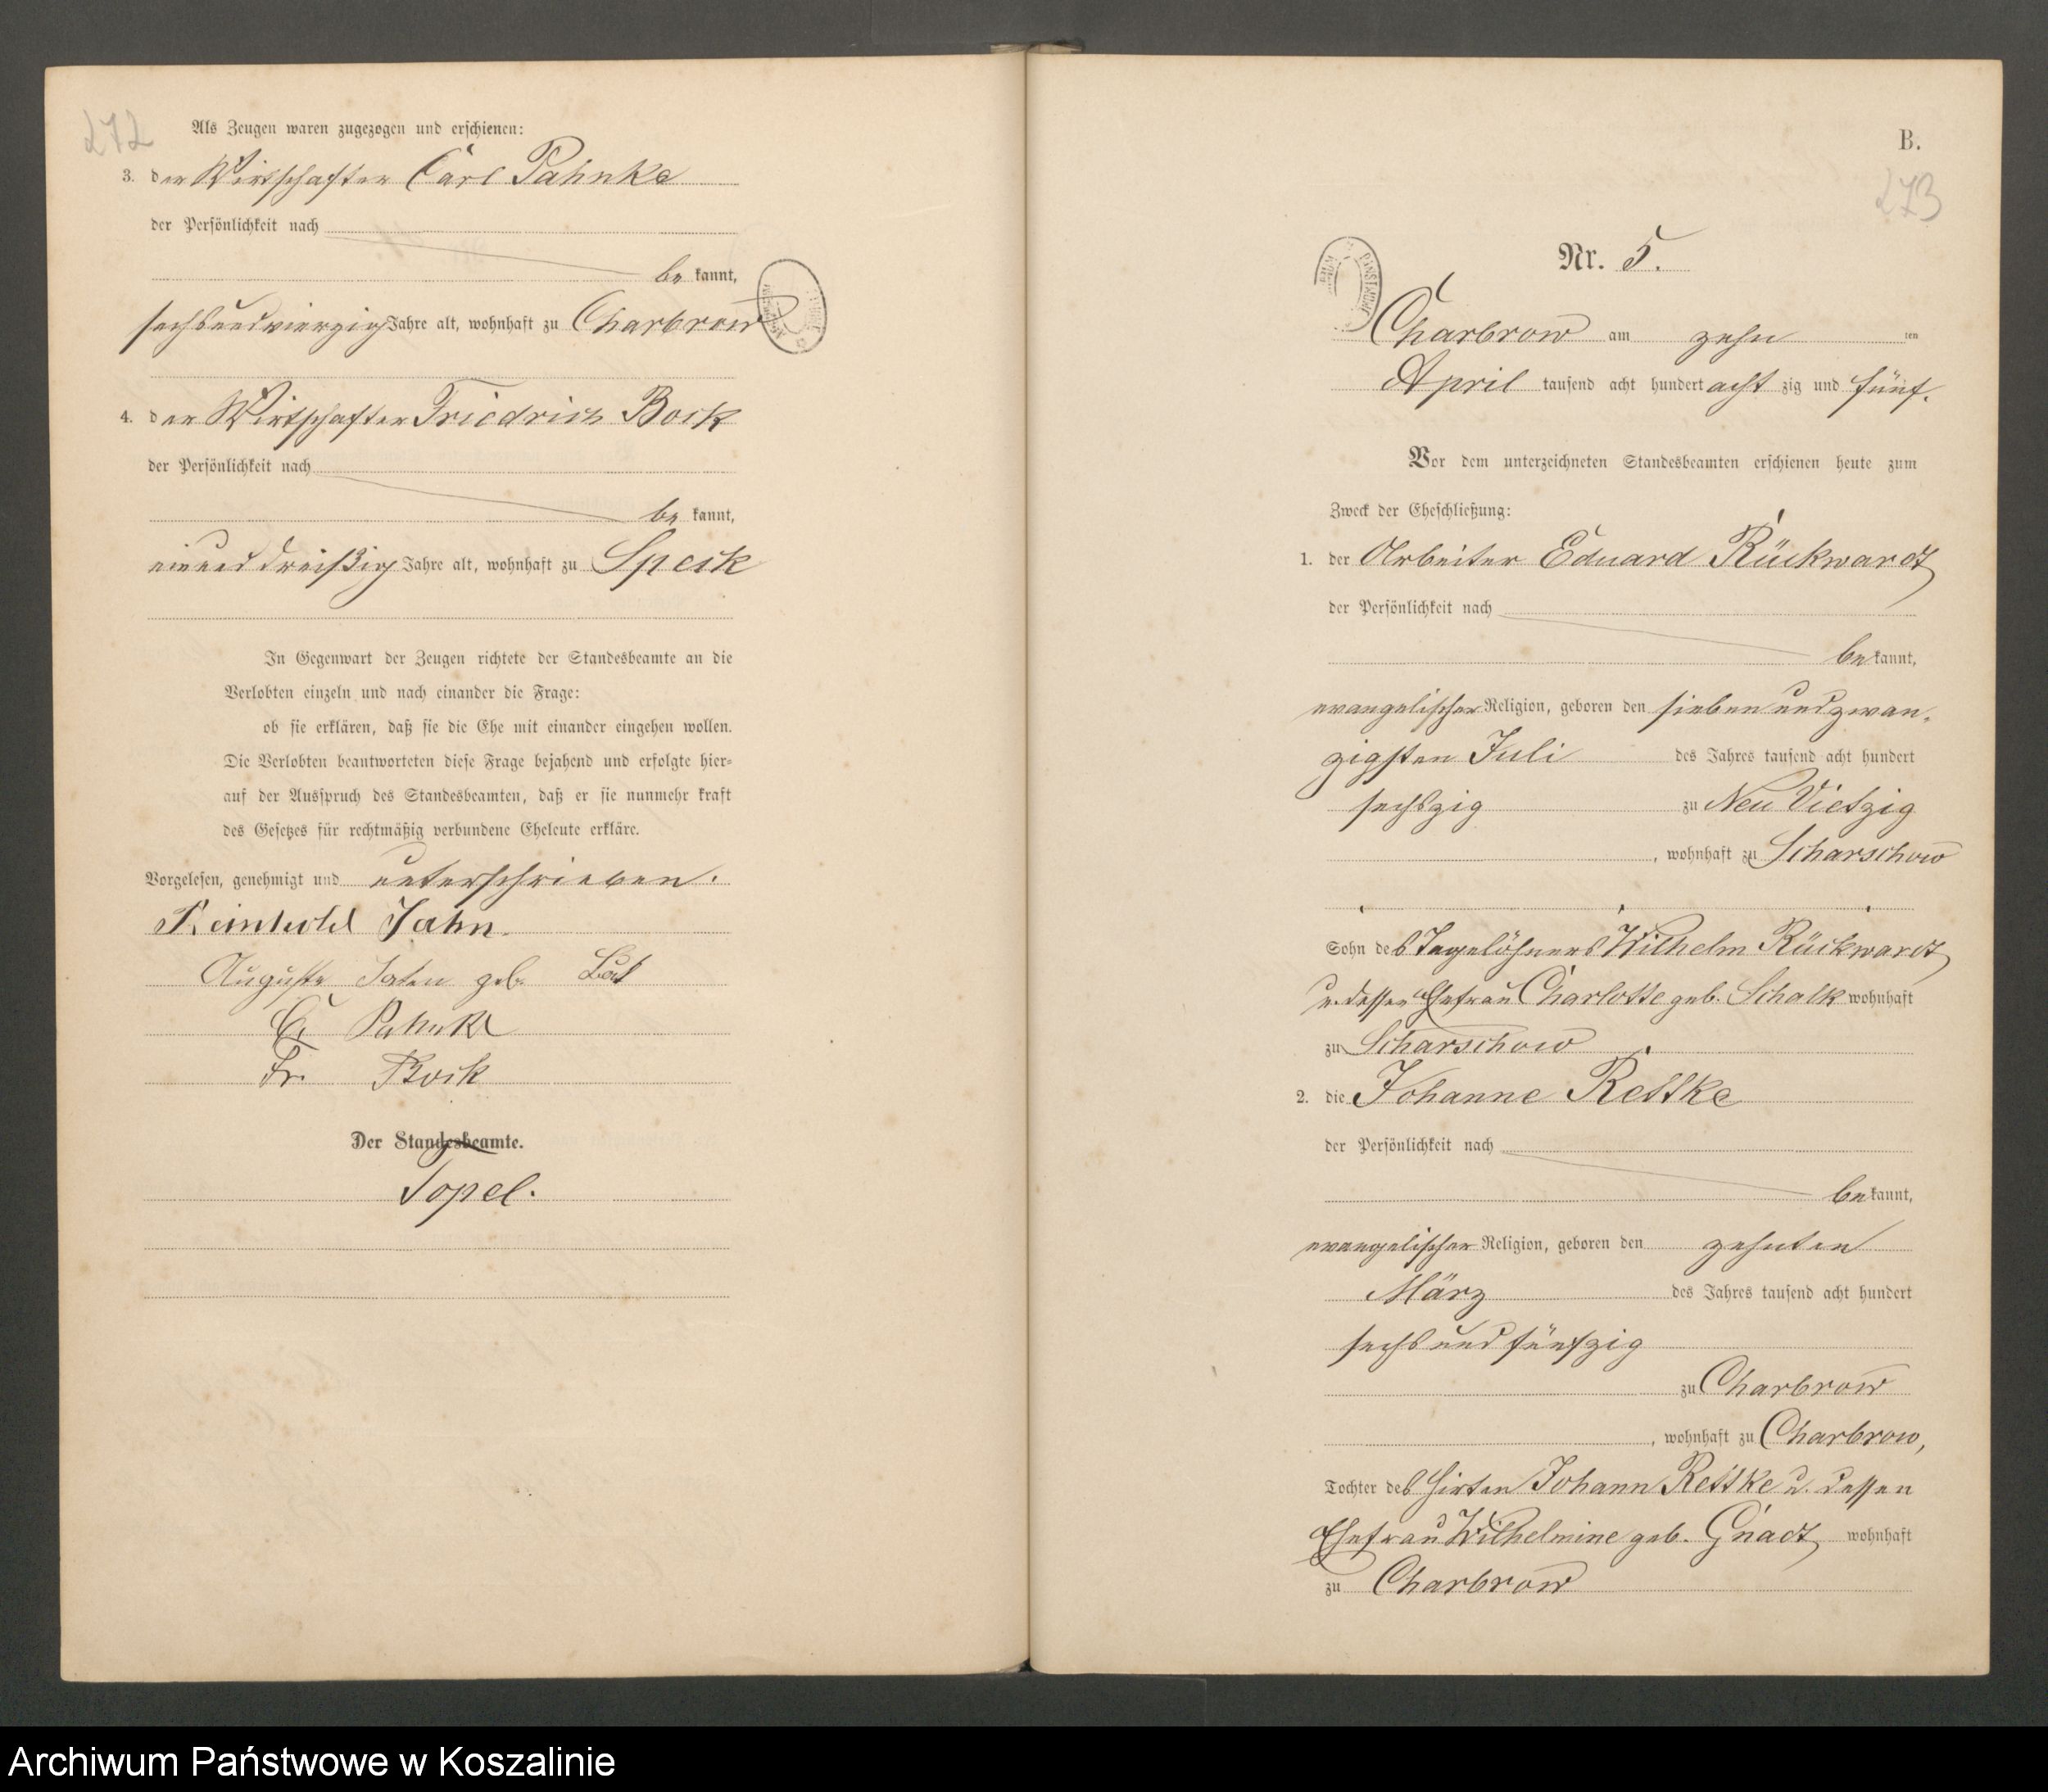 272
Als Zeugen waren zugezogen und erschienen:
3. der Wirtschafter Carl Pahnke
der Persönlichkeit nach
be kannt,
sechsundvierzig Jahre alt, wohnhaft zu Charbrow
4. der Wirtschafter Friedrich Bock
der Persönlichkeit nach
be kannt,
einunddreißig Jahre alt, wohnhaft zu Speck
In Gegenwart der Zeugen richtete der Standesbeamte an die
Verlobten einzeln und nach einander die Frage:
ob sie erklären, daß sie die Ehe mit einander eingehen wollen.
Die Verlobten beantworteten diese Frage bejahend und erfolgte hier-
auf der Ausspruch des Standesbeamten, daß er sie nunmehr kraft
des Gesetzes für rechtmäßig verbundene Eheleute erkläre.
Vorgelesen, genehmigt und unterschrieben.
Reinhold Jahn.
Auguste geb.
C. Pahnke
Fr. Bock
Der Standesbeamte.
Topel.
B.
273
Nr. 5.
Charbrow am zehn ten
April tausend acht hundert acht zig und fünf.
Vor dem unterzeichneten Standesbeamten erschienen heute zum
Zweck der Eheschließung:
1. der Arbeiter Eduard Rückwardt
der Persönlichkeit nach
be kannt,
evangelischer Religion, geboren den siebenundzwan-
zigsten Juli des Jahres tausend acht hundert
sechszig zu Neu Vietzig
, wohnhaft zu Scharschow
Sohn des Tagelöhners Wilhelm Rückwardt
u. dessen Ehefrau Charlotte geb. Schalk wohnhaft
zu Scharschow
2. die Johanne Rettke
der Persönlichkeit nach
be kannt,
evangelischer Religion, geboren den zehnten
März des Jahres tausend acht hundert
sechsundfünfzig
zu Charbrow
, wohnhaft zu Charbrow,
Tochter des Hirten Johann Rettke u. dessen
Ehefrau Wilhelmine geb. Gnadt wohnhaft
zu Charbrow
Archiwum Państwowe w Koszalinie